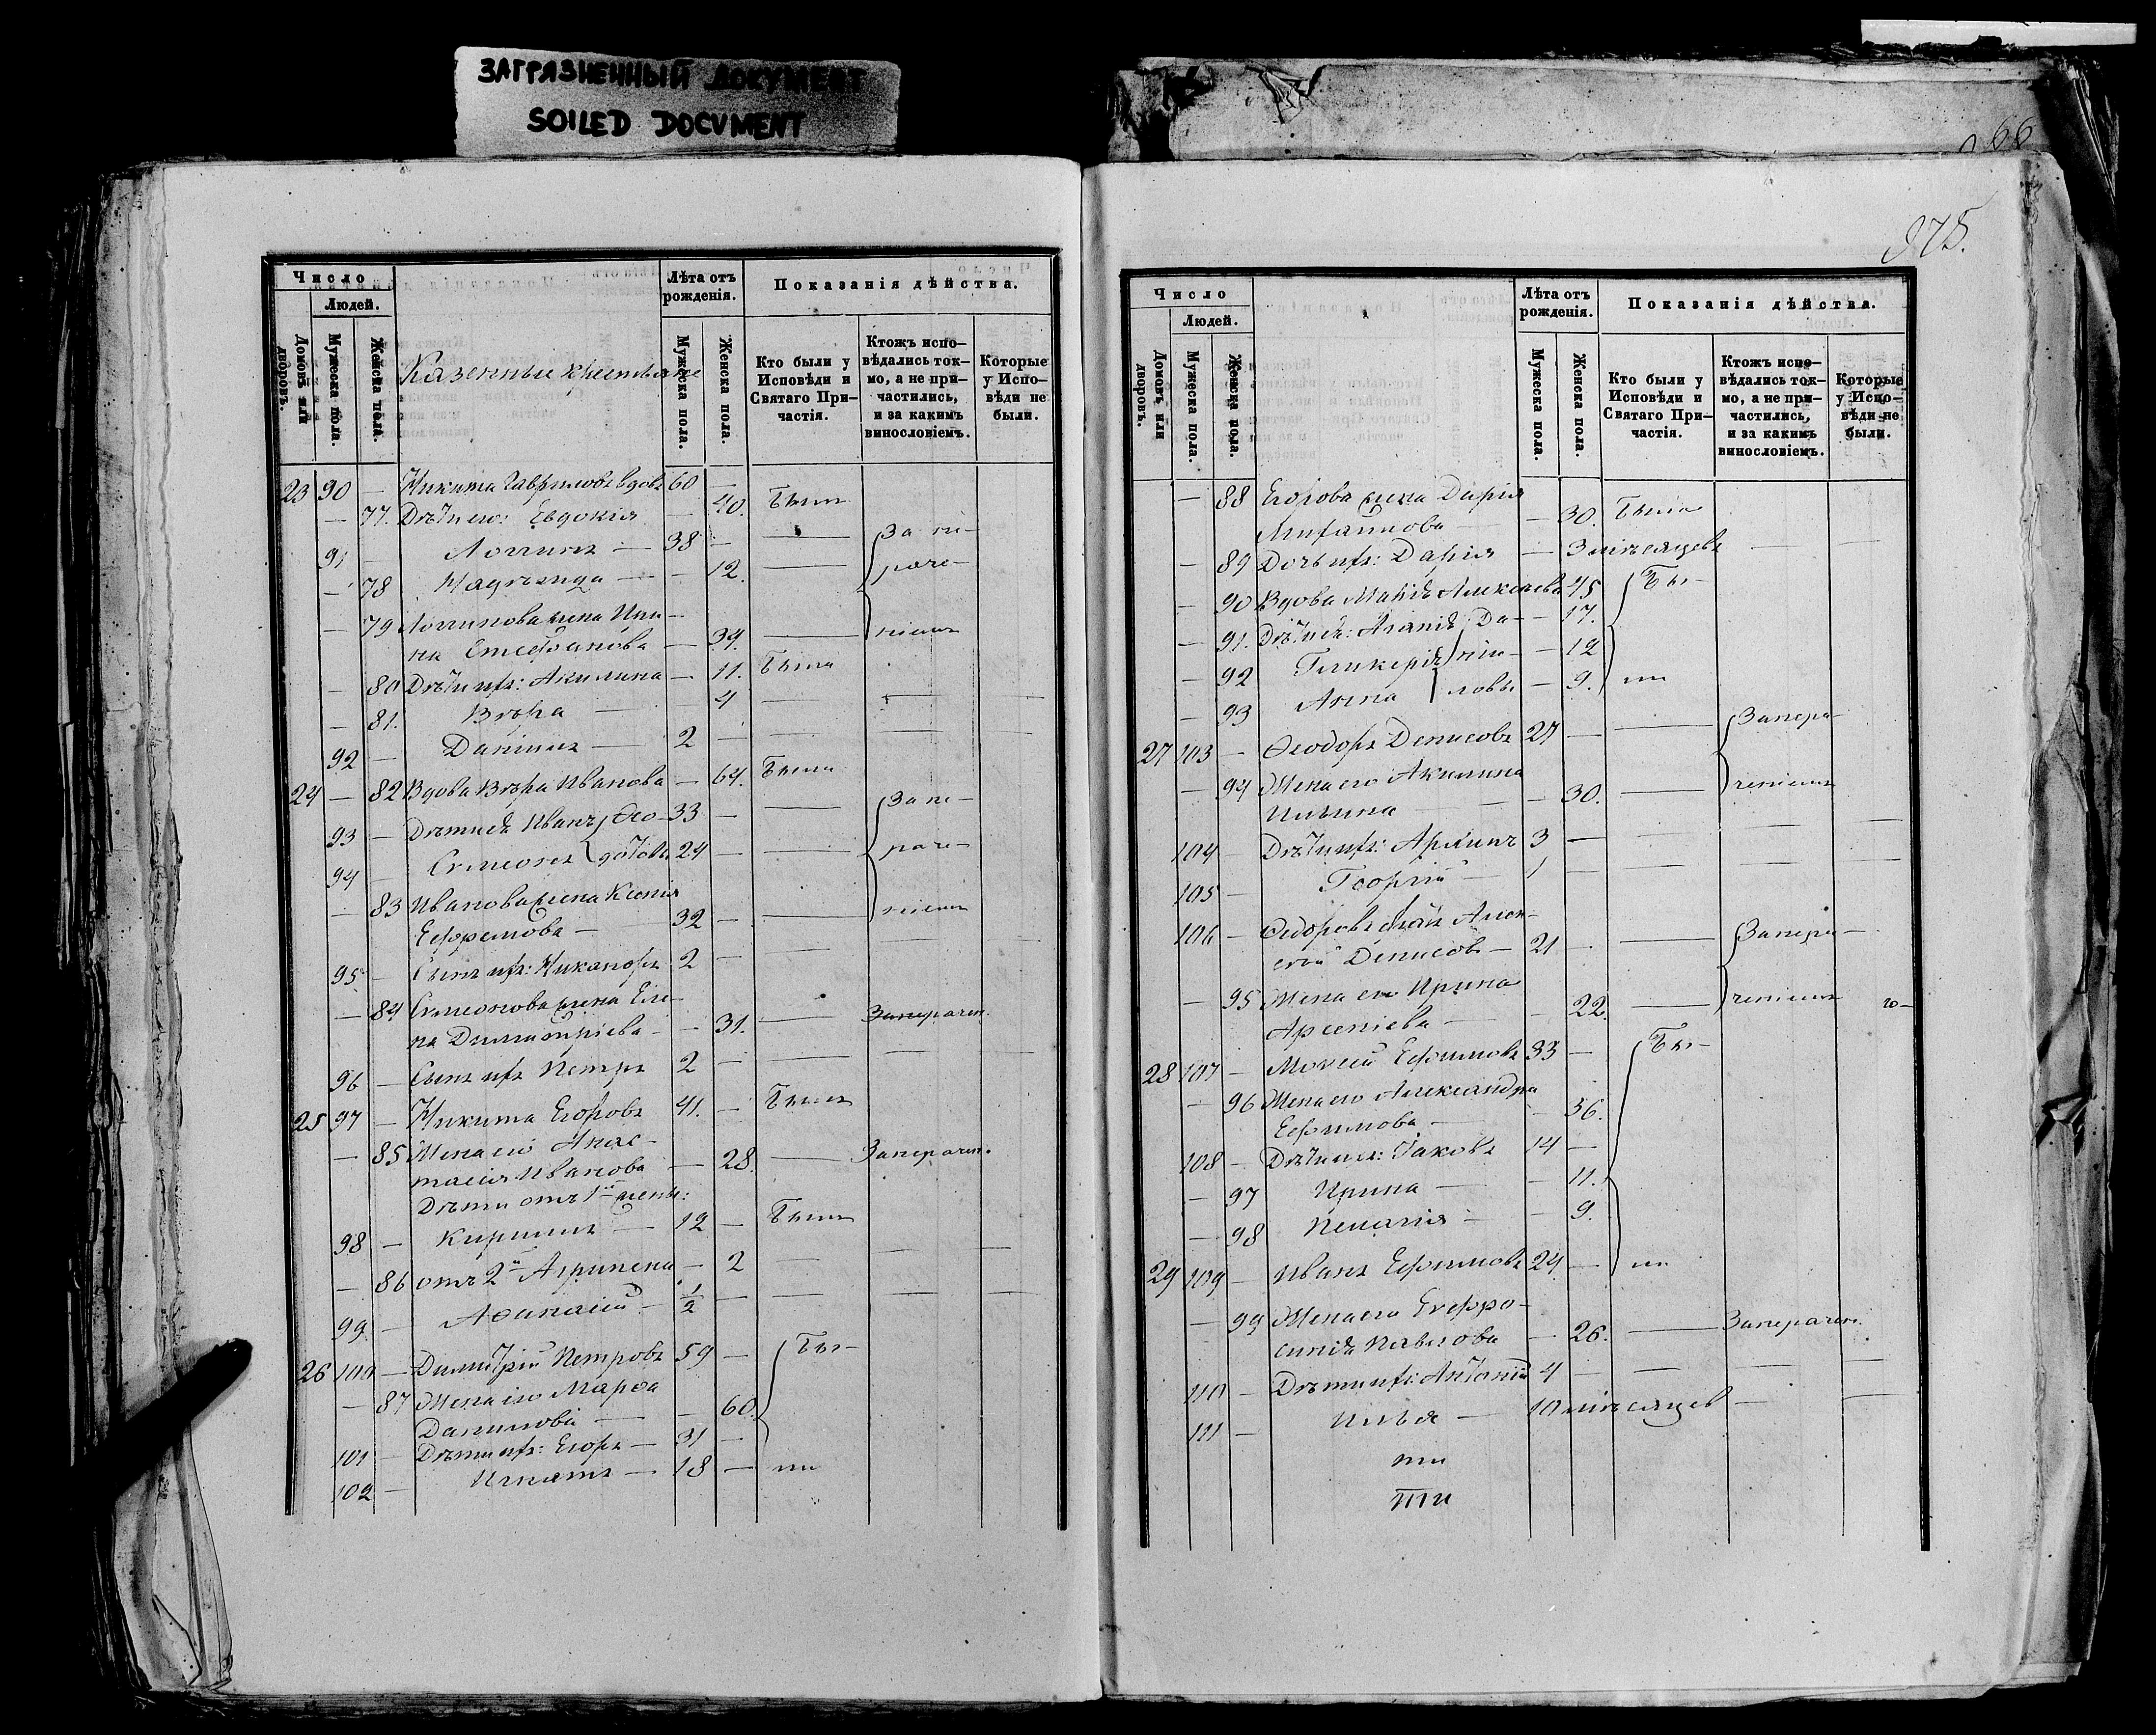 ЗАГРЯЗНЕННЫЙ ДОКУМЕНТ
SOILED DOCUMENT
Число
Людей.
Домовъ или дворовъ.
Мужеска пола.
Женска пола.
Казенные крестьяне
Лѣта отъ рожденія.
Мужеска пола.
Женска пола.
Показанія дѣйства.
Кто были у Исповѣди и Святаго Причастія.
Ктожъ исповѣдались токмо, а не причастились, и за какимъ винословіемъ.
Которые у Исповѣди не были.
23 90 — Никита Гавриловъ вдовъ 60 —
— 77. Дѣти его: Евдокія — 40. Были
91 — Логгинъ — 38 — — За не-
— 78 Надежда — — 12. — раче-
— 79 Логгинова жена Ири-
на Стефанова — 39. — ніемъ
— 80 Дѣти ихъ: Акилина — 11. Была
— 81. Вѣра — 4 — — —
92 — Даніилъ — 2 — — — —
24 — 82 Вдова Вѣра Иванова — 64. Были
93 — Дѣти ея Иванъ Ѳео- 33 — — За не-
94 — Симеонъ дотовы 24 — — раче-
— 83 Иванова жена Ксенія
Ефремова — 32 — — ніемъ
95 — Сынъ ихъ: Никаноръ 2 — — — —
— 84 Симеонова жена Еле-
на Димитріева — — 31. — Занерачен.
96 — Сынъ ихъ Петръ 2 — — — —
25 97 — Никита Егоровъ 41. — Былъ
— 85 Жена его Анас-
тасія Иванова — 28. — Занерачен.
Дѣти отъ 1й жены:
98 — Кириллъ — 12 — Былъ
— 86 отъ 2й Агрипена — 2 — — —
99. — Аѳанасій — 1/2 — — — —
26 100 — Димитрій Петровъ 59 — Бы-
— 87 Жена его Марѳа
Данилова — — 60.
101 — Дѣти ихъ: Егоръ — 31 —
102 — Игнатъ — 18 — ли
375.
Число
Людей.
Домовъ или дворовъ.
Мужеска пола.
Женска пола.
Лѣта отъ рожденія.
Мужеска пола.
Женска пола.
Показанія дѣйства.
Кто были у Исповѣди и Святаго Причастія.
Ктожъ исповѣдались токмо, а не причастились, и за какимъ винословіемъ.
Которые у Исповѣди не были.
— 88 Егорова жена Дарія
— 30. Была
— 89 Дочь ихъ: Дарія — 3 мѣсяцевъ — —
— 90 Вдова Марія Алексѣева 45 Бы-
— 91. Дѣти ея: Агапія Да- — 17.
— 92 Гликерія нии- — 12
— 93 Анна ловы — 9. ли
27 103 — Ѳеодоръ Денисовъ 27 — — Занера-
— 94 Жена его Акилина
Ильина — — 30. — ченіемъ
104 — Дѣти ихъ: Архипъ 3 — — — —
105 — Георгій — 1 — — — —
106 — Ѳедоровъ братъ Алек-
сѣй Денисовъ — 21 — — Занера-
— 95 Жена его Ирина
Арсеніева — — 22. — ченіемъ
28 107 — Мокей Ефимовъ 33 — Бы-
— 96 Жена его Александра
Ефимова — — 36.
108 — Дѣти ихъ: Іаковъ 14 —
— 97 Ирина — — 11.
— 98 Пелагія — — 9.
29 109 — Иванъ Ефимовъ 24 — ли
— 99 Жена его Евфро-
синія Павлова — 26. — Занерачен.
110 — Дѣти ихъ: Антоній 4 — — — —
111 — Илья — 10 мѣсяцевъ — —